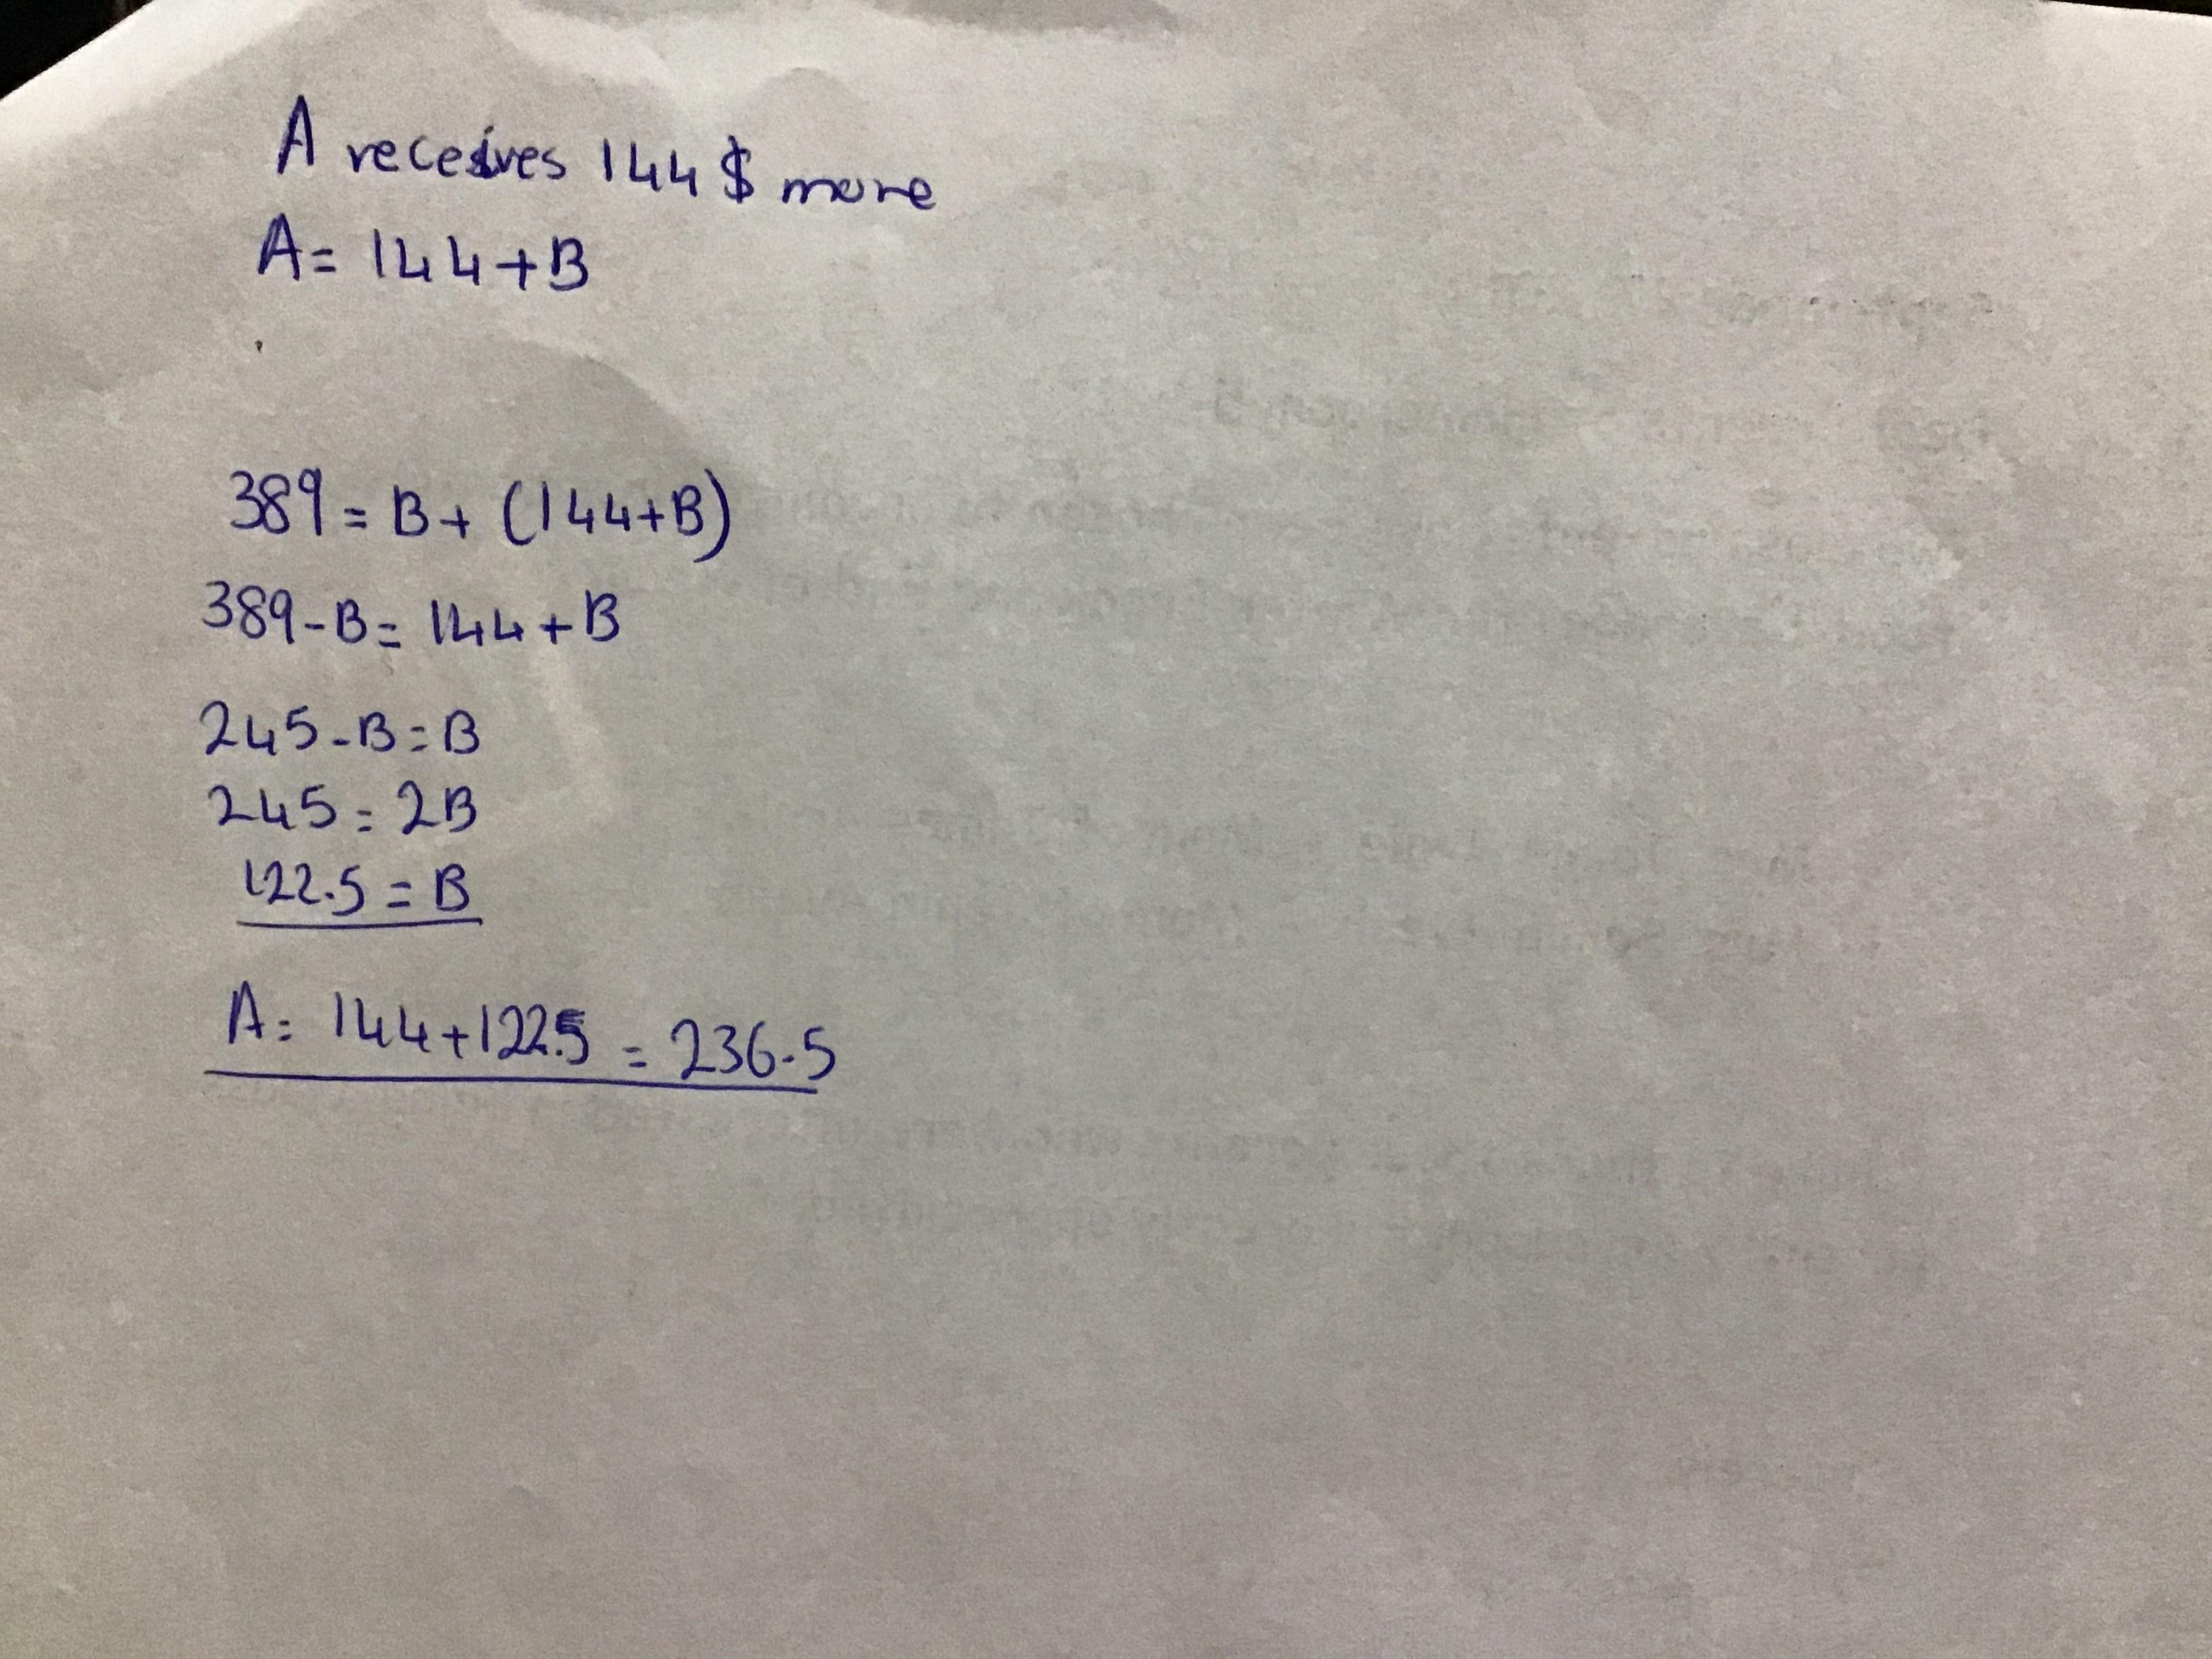 A receives 144 $ more
A= 144+B
389 = B+ (144+B)
389-B= 144+B
245-B=B
245=2B
122.5=B
A= 144+122.5 = 236.5